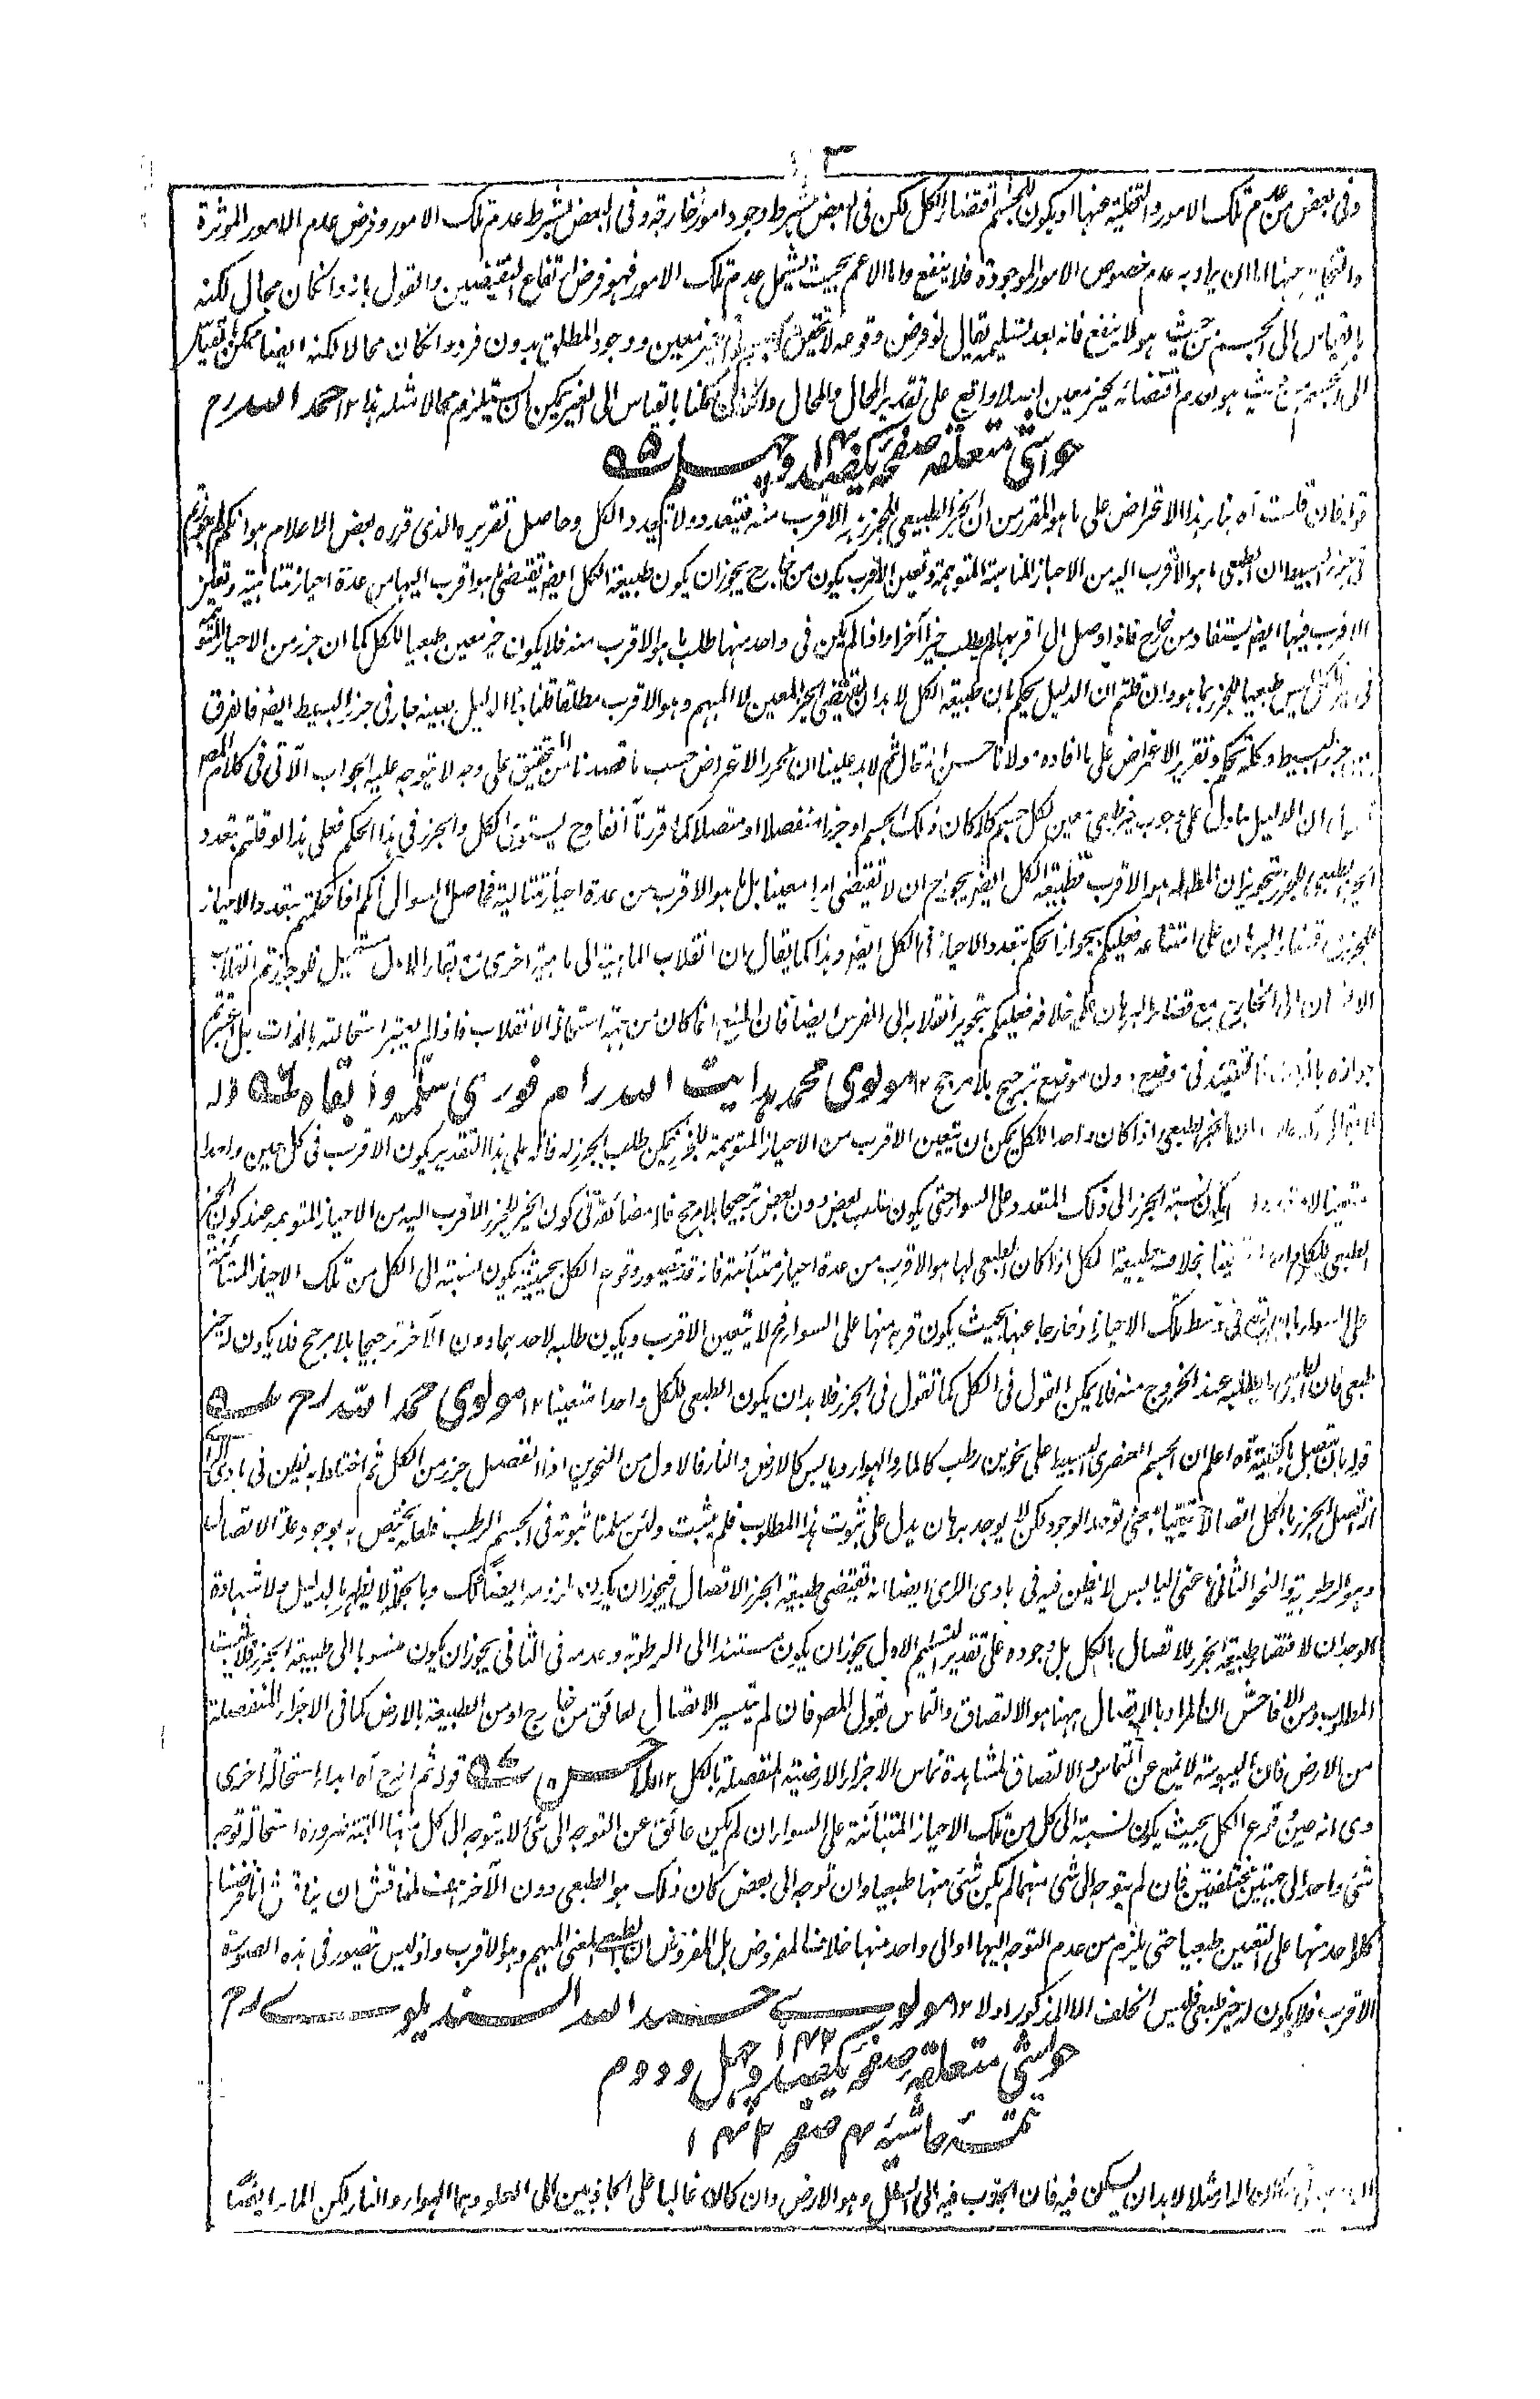 ٣
وفى بعض من عدم تلك الامور والتخلية عنها او يكون للجسم اقتضاء الكل لكن فى البعض بشرط وجود امور خارقة وفى البعض بشرط عدم تلك الامور وفرض عدم الامور الموثرة
عنها اما ان يراد به عدم خصوص الامور الموجودة فلا ينفع واما الاعم بحيث يشمل عدم تلك الامور فهو فرض ارتفاع النقيضين والقول بانه وان كان محال لكنه
بالقياس الى الجسم من حيث هو لا ينفع فانه بعد تسليمه يقال لو فرض وقوعه لا يتحقق فى حيز معين ووجود المطلق بدون فرد وان كان محالا لكنه ايضا ممكن بقياس
الى الجسم من حيث هو لعدم اقتضائه بحيز معين على تقدير المحال والمحال وان كان ممكنا بالقياس الى الغير يمكن ان يستلزم محالا مثله هذا ١٢ حمد الله رح
حواشى متعلقه صفحه يكصد و چهل ١٤٠
قوله فان قلت آه بناء هذا الاعتراض على ما هو المقرر من ان الحيز الطبيعى للجزء هو الاقرب منه فيتعدد ولا يتعدد الكل وحاصل تقريره الذى قرره بعض الاعلام هو انكم
فى جزء البسيط ان الطبعى ما هو الاقرب اليه من الاحياز المناسبة المتوهمة وتعين الاقرب يكون من خارج يجوز ان يكون طبيعة الكل ايضا تقتضى ما هو اقرب اليها من عدة احياز متناهية وتعين
الاقرب فيها ايضا يستفاد من خارج فاذا وصل الى اقربها لم يطلب حيزا آخر واذا لم يكن فى واحد منها طلب ما هو الاقرب منه فلا يكون حيز معين طبعيا للكل كما ان جزء من الاحياز المتوهمة
فى حيز الكل ليس طبعيا للجزء بما هو وان قلتم ان الدليل يحكم بان طبيعة الكل لا بد ان تقتضى الحيز المعين لا المبهم وهو الاقرب مطلقا قلنا هذا الدليل بعينه جار فى جزء البسيط ايضا فالفرق
بين جزء البسيط وكله تحكم وتقرير الاعتراض على ما افاده مولانا حسن انه قال ثم لا بد علينا ان نحرر الاعتراض حسب ما قصدنا من التحقيق على وجه لا يتوجه عليه الجواب الآتى فى كلام المصر
ان الدليل ما دل على وجوب حيز طبعى معين لكل جسم كلا كان ذلك الجسم او جزءا منفصلا او متصلا كما قررنا آنفا وح يستوى الكل والجزء فى هذا الحكم فعلى هذا لو قلتم بتعدد
الحيز الطبعى للجزء بتجويز ان المطلوب له هو الاقرب فطبيعة الكل ايضا يجوز ح ان لا تقتضى امرا معينا بل ما هو الاقرب من عدة احياز متتالية فحاصل السوال انكم اذا حكمتم بتعدد الاحياز
للجزء مع قضاء البرهان على امتناعه فعليكم بجواز الحكم بتعدد الاحياز فى الكل ايضا وهذا كما يقال ان انقلاب الماهية الى ماهية اخرى مع بقاء الاول مستحيل فلو جوزتم انقلاب
الى الخارجى مع قضاء البرهان على خلافه فعليكم بتجويز انقلابه الى الفرس ايضا فان المنع انما كان من جهة استحالة الانقلاب فاذا لم يعتبر استحالته بالذات بل اعتبرتم
جوازه فى موضع دون موضع ترجيح بلا مرجح ١٢ مولوى محمد هدايت الله رام فورى سلمه وابقاه
الحيز الطبعى اذا كان واحدا للكل يمكن ان يتعين الاقرب من الاحياز المتوهمة للجزء فيمكن طلب الجزء له فانه على هذا التقدير يكون الاقرب فى كل حين واحدا
يكون نسبة الجزء الى ذلك المتعدد على السواء حتى يكون طلب بعض دون بعض ترجيحا بلا مرجح فلا مضائقة فى كون الحيز للجزء الاقرب اليه من الاحياز المتوهمة عند كون الحيز
الطبعى للكل بخلاف طبيعة الكل اذا كان الطبعى لها هو الاقرب من عدة احياز متبائنة فانه قد يتصور وقوع الكل بحيث يكون نسبته الى الكل من تلك الاحياز المتبائنة
على السواء بان يقع فى وسط تلك الاحياز او خارجا عنها بحيث يكون قربه منها على السواء فح لا يتعين الاقرب ويكون طلبه لاحدهما دون الآخر ترجيحا بلا مرجح فلا يكون له حيز
طبعى فان الطبعى ما يطلبه عند الخروج منه فلا يمكن القول فى الكل كما تقول فى الجزء فلا بد ان يكون الطبعى للكل واحدا متعينا ١٢ مولوى حمد الله رح
قوله بان يتصل بالكلية آه اعلم ان الجسم العنصرى البسيط على نحوين رطب كالماء والهواء ويابس كالارض والنار فالاول من النحوين اذا انفصل جزء من الكل ثم اختلط به يظن فى بادى الراى
انه اتصل الجزء بالكل اتصالا حقيقيا بمعنى توحد الوجود لكن لا يوجد برهان يدل على ثبوت هذا المطلوب فلم يثبت ولئن سلمنا ثبوته فى الجسم الرطب فلعله يختص به بوجود علة الاتصال
وهو الرطوبة والنحو الثانى اعنى اليابس لا يظن فيه فى بادى الراى ايضا انه تقتضى طبيعة الجزء الاتصال فيجوز ان يكون وبالجملة لا يظهر بالدليل ولا شهادة
الوجدان لاقتضاء طبيعة الجزء للاتصال بالكل بل وجوده على تقدير التسليم الاول يجوز ان يكون مستندا الى الرطوبة وعدمه فى الثانى يجوز ان يكون منسوبا الى طبيعة الجزء فلا يثبت
المطلوب ومن الافاحش ان المراد بالاتصال ههنا هو الالتصاق والتماس بقول المصر فان لم يتيسر الاتصال لعائق من خارج او من الطبيعة بالارض كما فى الاجزاء المنفصلة
من الارض فان اليبوسة لا تمنع عن التماس والالتصاق لمشاهدة تماس الاجزاء الارضية المتصلة بالكل ١٢ ملا حسن رح قوله ثم انه ح آه ابداء استحالة اخرى
وهى انه حين وقوع الكل بحيث يكون نسبته الى كل من تلك الاحياز المتبائنة على السواء ان لم يكن عائق عن التوجه الى شئ لا يتوجه الى كل منها البتة ضرورة استحالة توجه
شئ واحد الى جهتين مختلفتين فان لم يتوجه الى شئ منهما لم يكن شئ منها طبعيا وان توجه الى بعض كان ذلك هو الطبعى دون الآخر هف لمناقش ان يناقش انا فرضنا
كل واحد منها على التعيين طبعيا حتى يلزم من عدم التوجه اليها او الى واحد منها خلاف المفروض بل المفروض ان الطبعى المعنى المبهم وهو الاقرب واذ ليس يتصور فى هذه الصورة
الاقرب فلا يكون له حيز طبعى فليس الخلف الا المذكور اولا ١٢ مولوى حمد الله السنديلوى رح
حواشى متعلقه صفحه يكصد و چهل و دوم ١٤٢
تتمه حاشيه ٣ صفحه ١٤٢
ان الماء مثلا لا بد ان يسكن فيه فان المجذوب فيه الى اسفل وهو الارض وان كان غالبا على الجاذبين الى العلو وهما الهواء والنار لكن الماء ايضا